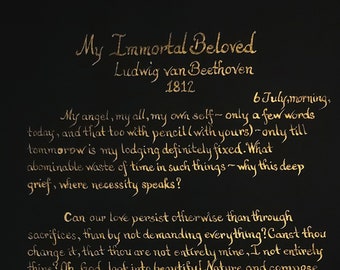 My Immortal Beloved
Ludwig van Beethoven
1812
6 July, morning,
My angel, my all, my own self ~ only a few words
today, and that too with pencil (with yours) ~ only till
tommorow is my lodging definitely fixed. What
abominable waste of time in such things ~ why this deep
grief, where necessity speaks?
Can our love persist otherwise than through
sacrifices, than by not demanding everything? Canst thou
change it, that thou are not entirely mine, I not entirely
thine? Oh, God, look into beautiful Nature and compose